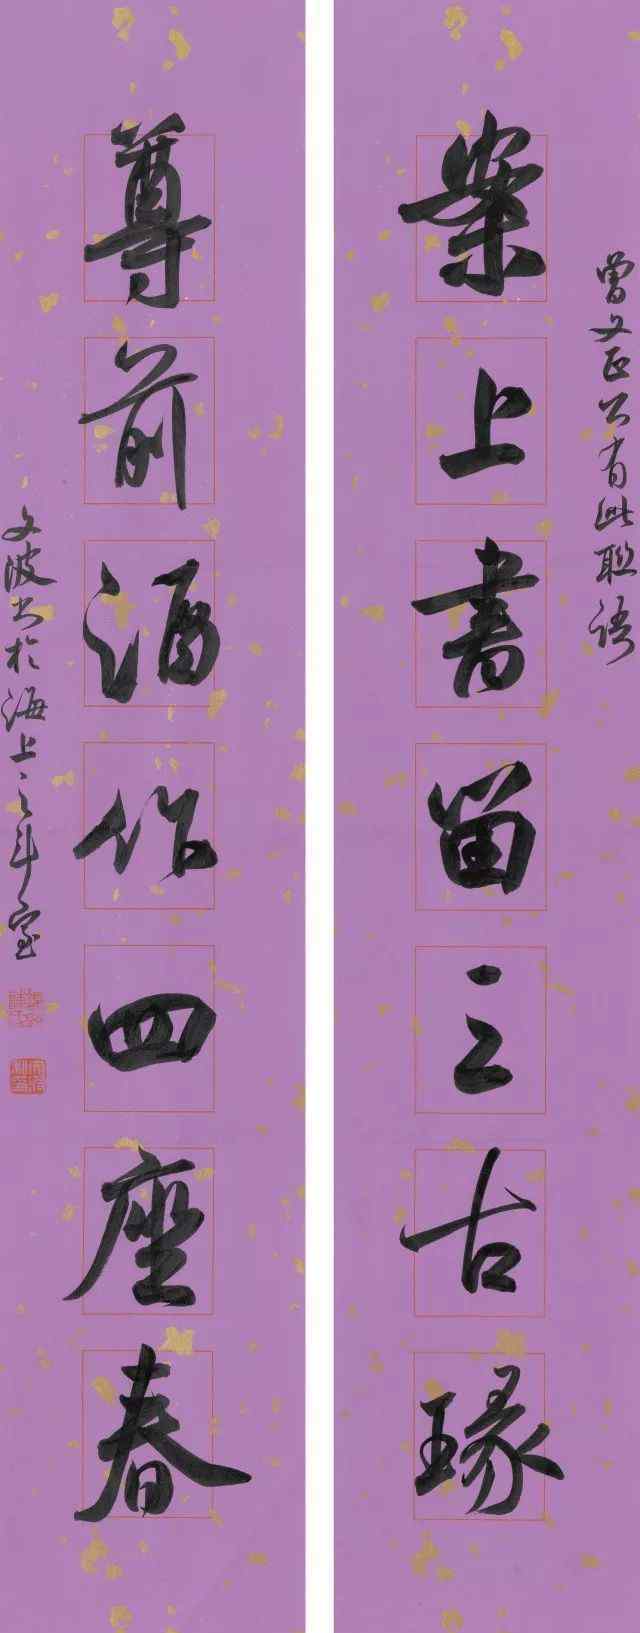 曾文正公有此聯語
案上書留三古瑑
尊前酒作四座春
文波书於海上之斗室